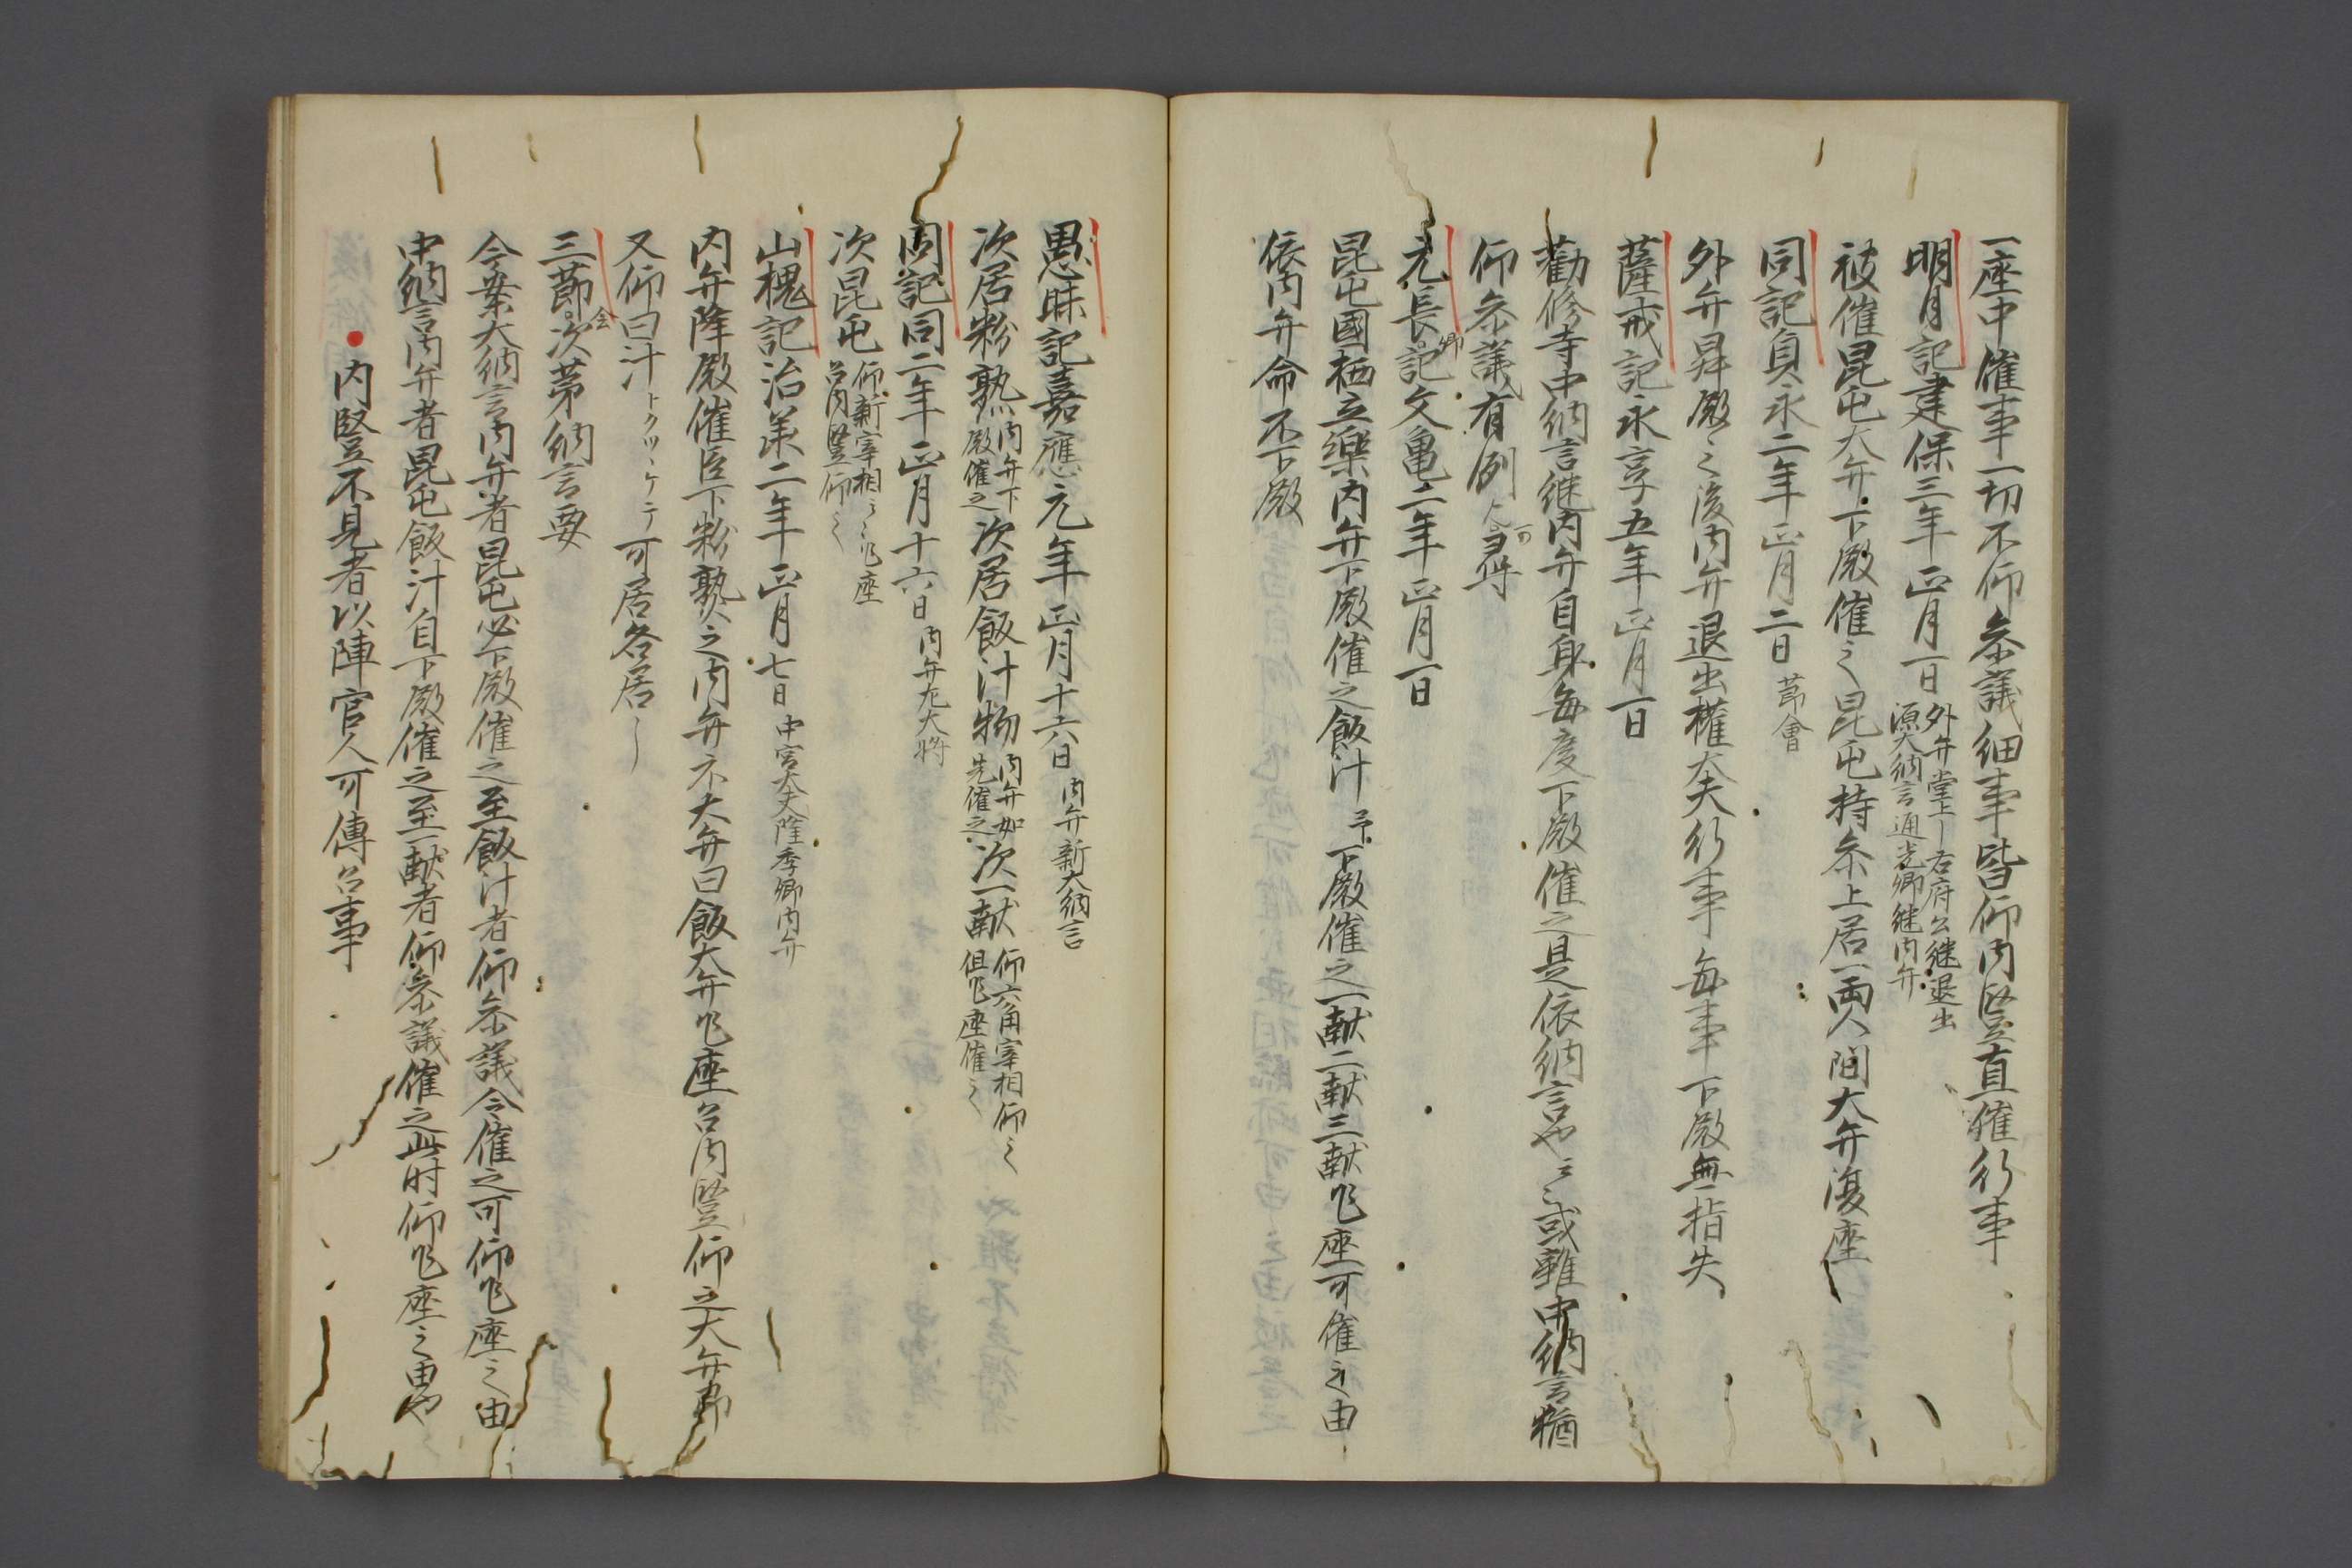 一座中催事一切不仰参議細事皆仰内竪直催行事
明月記建保三年正月一日 外弁堂上〻右府公継退出
源大納言通光卿継内弁
被催昆屯大弁下殿催之昆屯持参上居一両人間大弁復座
同記貞永二年正月二日 節會
外弁昇殿之後内弁退出權大夫行事毎事下殿無指失
薩戒記永享五年正月一日
勸修寺中納言継内弁自身毎度下殿催之是依納言也云々或雖中納言猶
仰参議有例
元長卿記文亀二年正月一日
昆屯國栖立樂内弁下殿催之飯汁予下殿催之一献二献三献乍座可催之由
依内弁命不下殿
愚昧記嘉應元年正月十六日 内弁新大納言
次居粉熟 内弁下
殿催之 次居飯汁物 内弁如
先催之 次一献 仰六角宰相仰之
但乍座催之
同記同二年正月十六日 内弁左大将
次昆屯 仰新宰相々々乍座
召内竪仰之
山槐記治承二年正月七日 中宮大夫隆季卿内弁
内弁降殿催臣下粉熟之内弁示大弁曰飯大弁乍座召内竪仰之大弁
又仰曰汁トクツヽケテ可居各居〻
三節会次第納言要
今案大納言内弁者昆屯必下殿催之至飯汁者仰参議令催之可仰乍座之由
中納言内弁者昆屯飯汁自下殿催之至一献者仰参議催之此時仰乍座之由也
内竪不見者以陣官人可傳召事